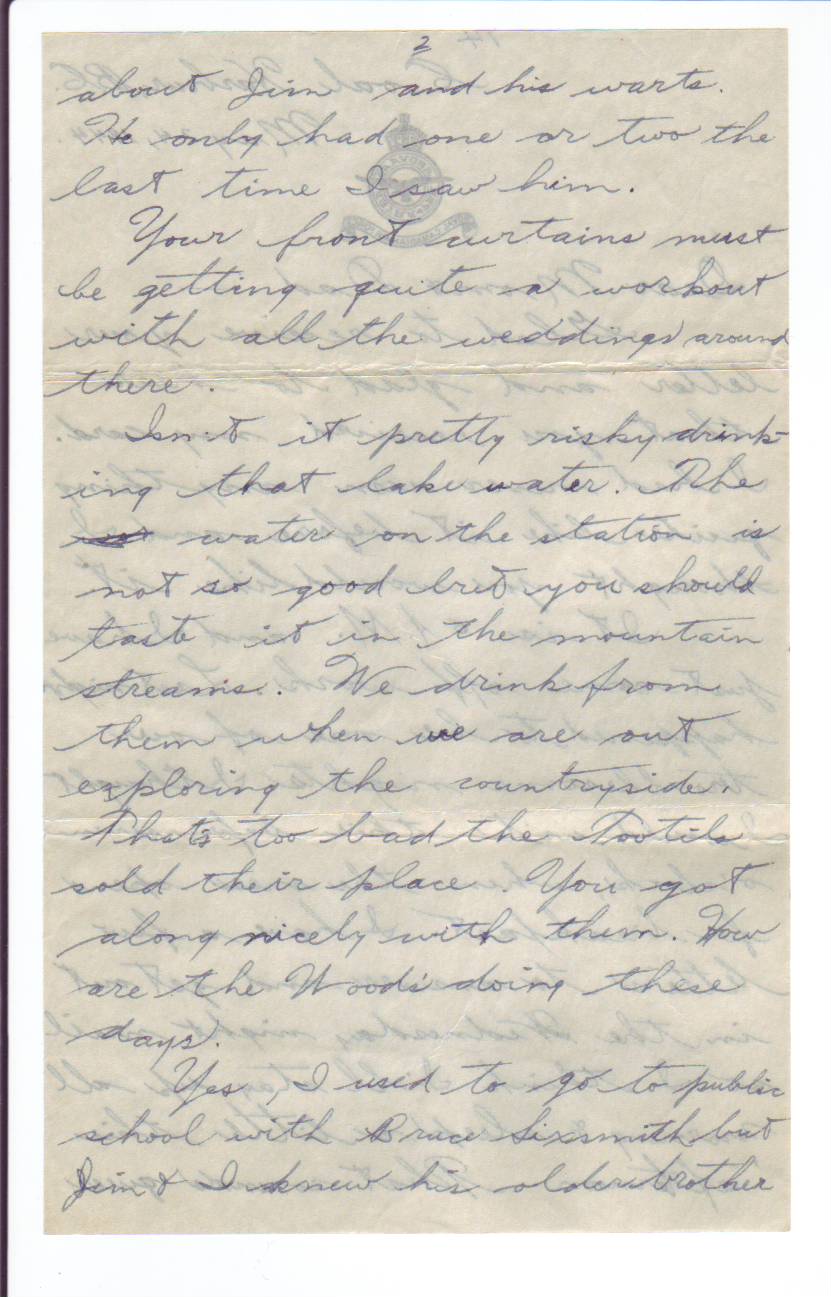 2
about Jim and his warts.
He only had one or two the
last time I saw him.
Your front curtains must
be getting quite a workout
with all the weddings around
there.
Isn't it pretty risky drink-
ing that lake water. The
water on the station is
not so good but you should
taste it in the mountain
streams. We drink from
them when we are out
exploring the countryside.
That's too bad the Tootils
sold their place. You got
along nicely with them. How
are the Woods' doing these
days.
Yes, I used to go to public
school with Bruce Sixsmith but
Jim & I knew his older brother